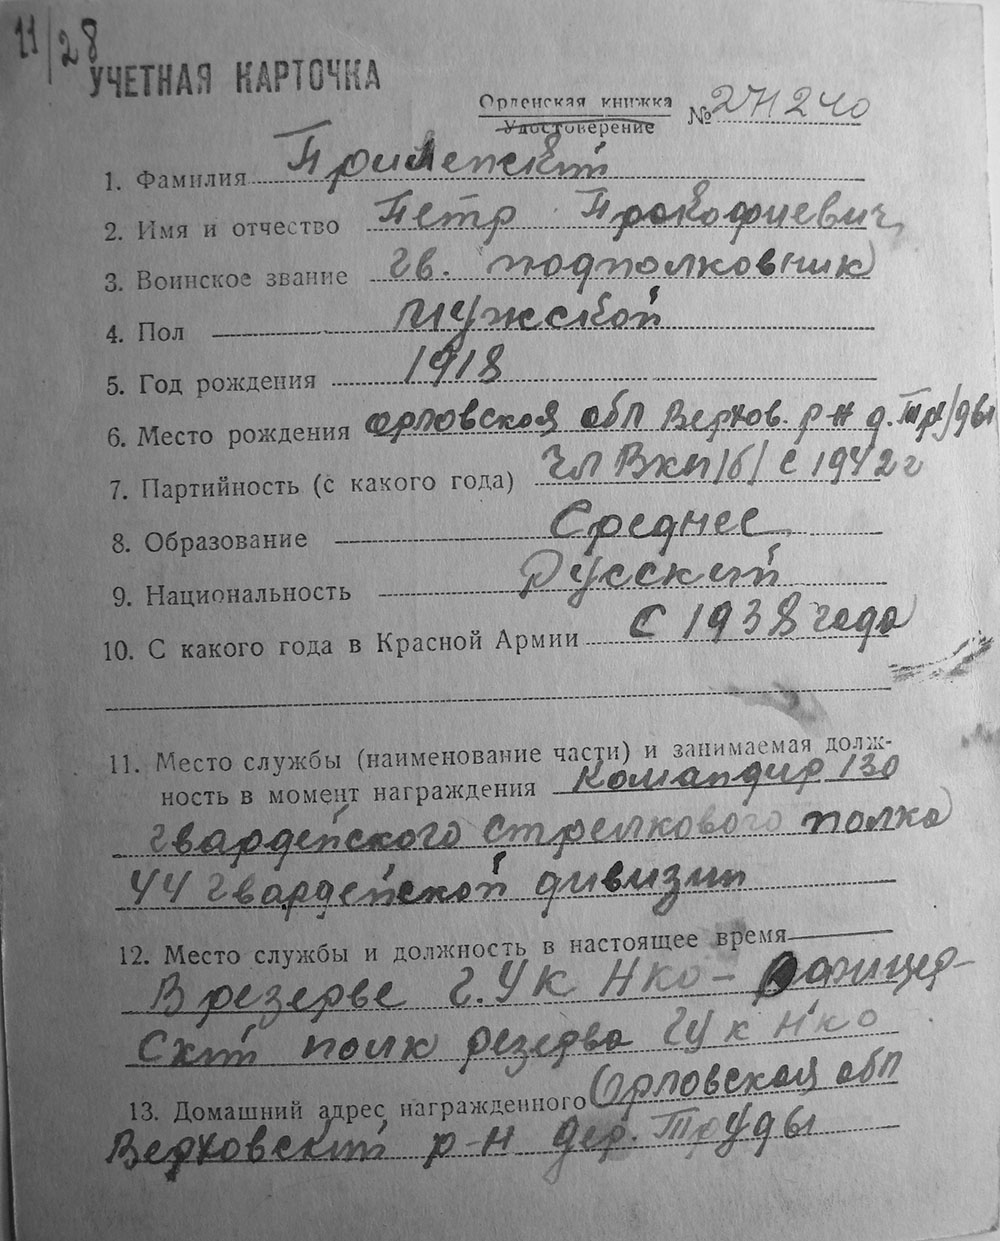 11/28
УЧЕТНАЯ КАРТОЧКА
Орденская книжка
Удостоверение
№ 271240
1. Фамилия Прилепский
2. Имя и отчество Петр Прокофиевич
3. Воинское звание гв. подполковник
4. Пол мужской
5. Год рождения 1918
6. Место рождения орловская обл Верхов. р-н д.
7. Партийность (с какого года) Чл ВКП/б/ с 1942 г
8. Образование Среднее
9. Национальность Русский
10. С какого года в Красной Армии с 1938 года
11. Место службы (наименование части) и занимаемая долж-
ность в момент награждения Командир 130
гвардейского стрелкового полка
44 гвардейской дивизии
12. Место службы и должность в настоящее время
В резерве г. УК НКО – Офицер-
ский полк резерва ГУК НКО
13. Домашний адрес награжденного Орловская обл
Верховский р-н дер. Труды